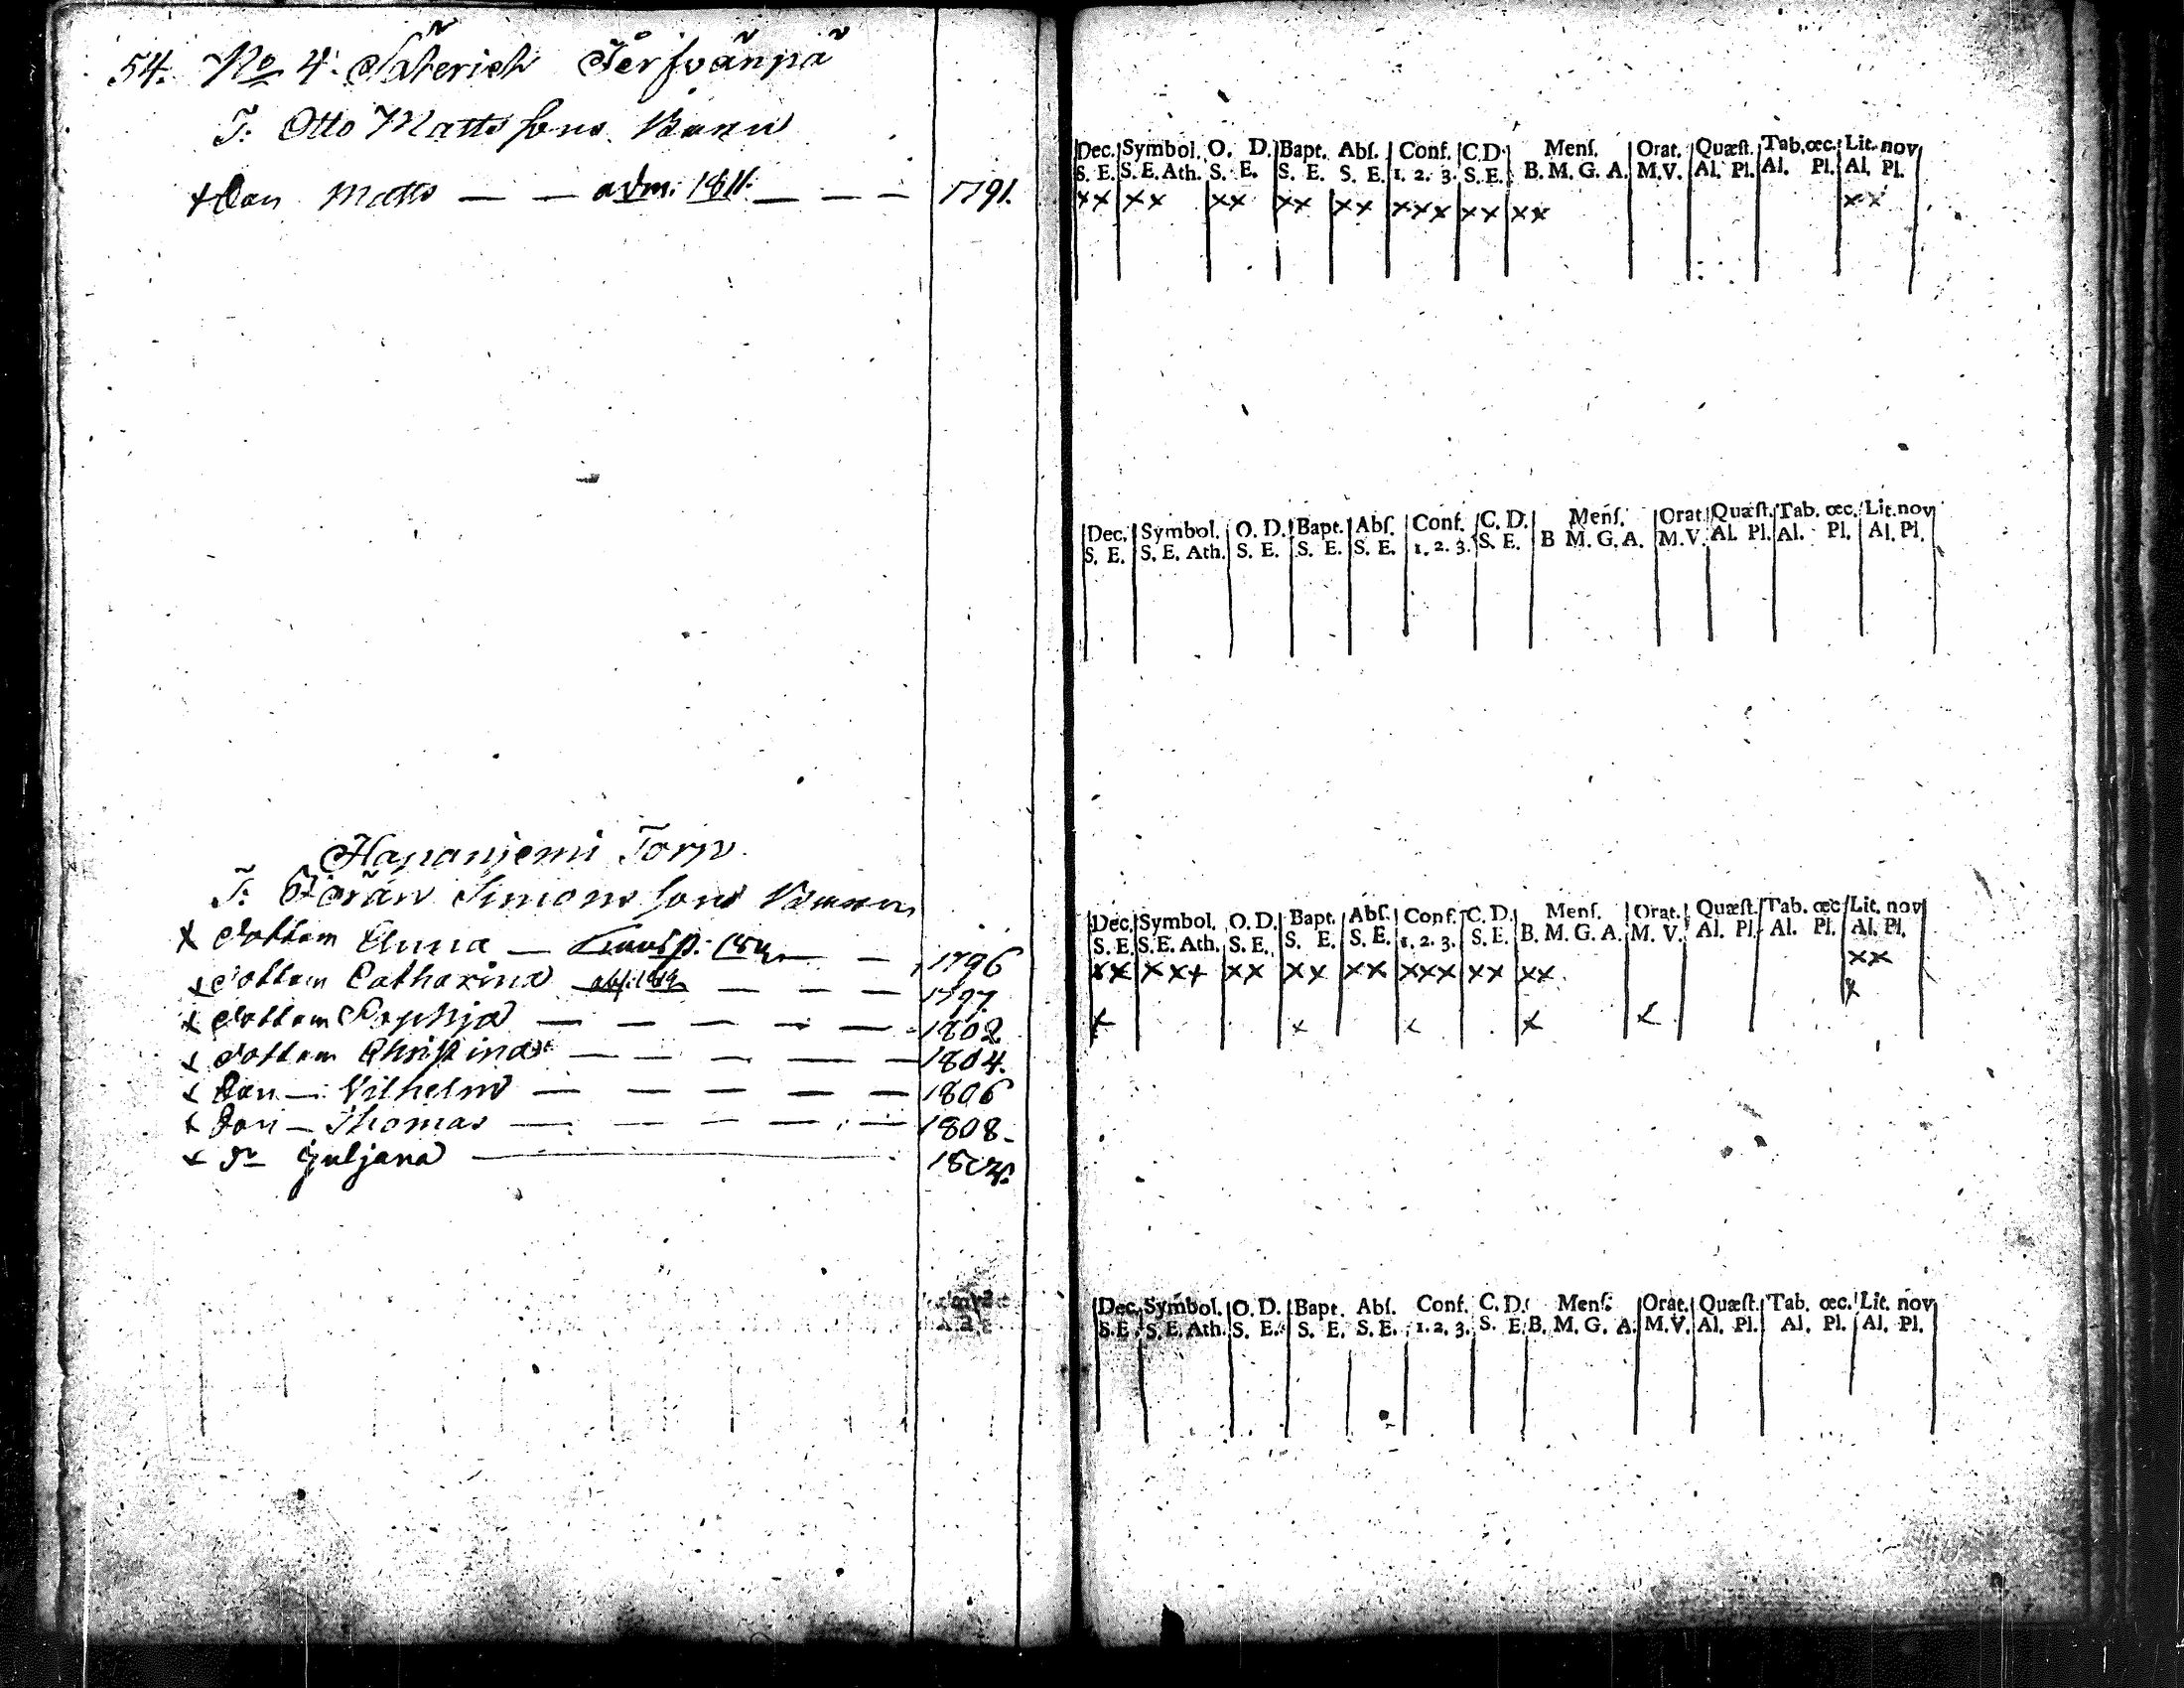 54. No 4. Säterich Jerfvänpä
T: Otto Mattssons Barn
x Son Matts — — adm: 1811. — — — 1791.
Hapanjemi Torp.
T: Jöran Simonssons Barn
x Dottern Anna — — — 1796
x Dottern Catharina — — — 1797.
x Dottern Sophja — — — — — 1802
x Dottern Christina — — — — — 1804.
x Son — Vilhelm — — — — — 1806
x Son — Thomas — — — — — 1808 -
x Dr Juljana ————
Dec. Symbol. O. D. Bapt. Abſ. Conf. C.D. Menſ. Orat. Quæſt. Tab. œc. Lit. nov
S. E. S. E. Ath. S. E. S. E. S. E. 1. 2. 3. S. E. B. M. G. A. M.V. Al. Pl. Al. Pl. Al. Pl.
xx xx xx xx xx xxx xx xx xx
Dec. Symbol. O. D. Bapt. Abſ. Conf. C. D. Menſ. Orat. Quæſt. Tab. œc. Lit. nov
S. E. S. E. Ath. S. E. S. E. S. E. 1. 2. 3. S. E. B M. G. A. M.V. Al. Pl. Al. Pl. Al. Pl.
Dec. Symbol. O. D. Bapt. Abſ. Conf. C. D. Menſ. Orat. Quæſt. Tab. œc. Lit. nov
S. E. S. E. Ath. S. E. S. E. S. E. 1. 2. 3. S. E. B. M. G. A. M. V. Al. Pl. Al. Pl. Al. Pl.
xx xxx xx xx xx xxx xx xx xx
x
x x x x x
Dec. Symbol. O. D. Bapt. Abſ. Conf. C. D. Menſ. Orat. Quæſt. Tab. œc. Lit. nov
S. E. S. E. Ath. S. E. S. E. S. E. 1. 2. 3. S. E. B. M. G. A. M.V. Al. Pl. Al. Pl. Al. Pl.